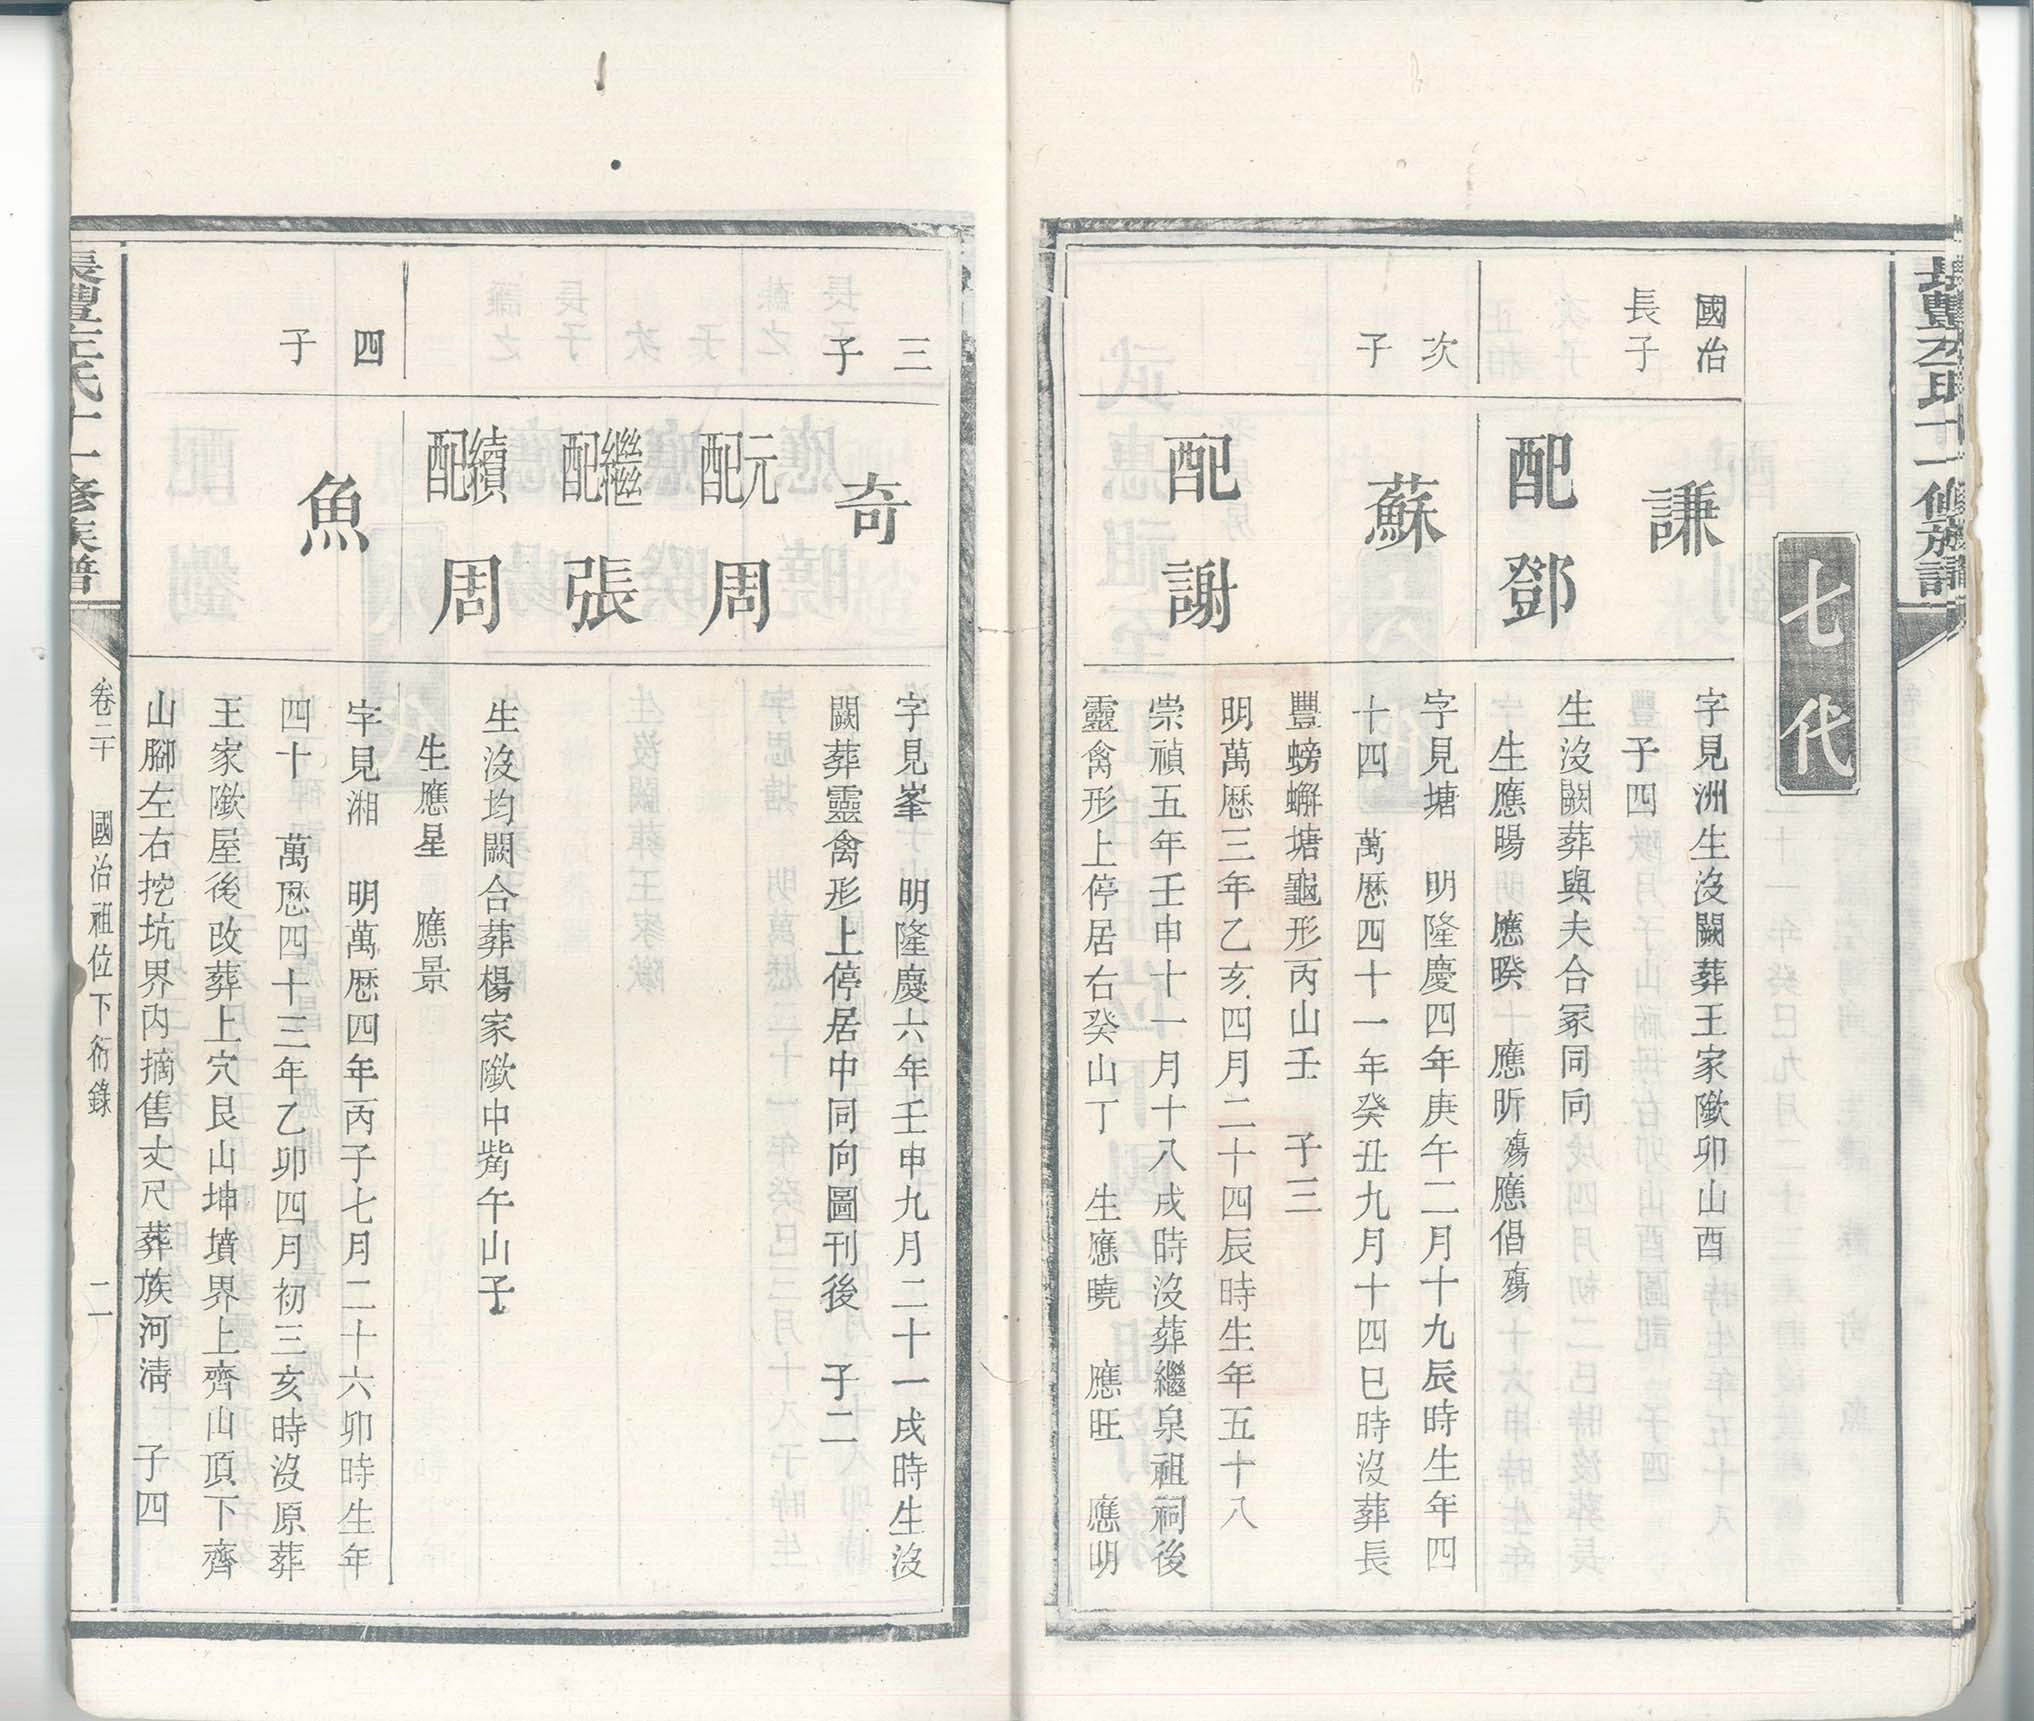 七代
國治
長子
謙
字見洲生沒闕葬王家歘卯山酉
子四
配鄧
生沒闕葬與夫合冢同向
生應暘　應暌　應昕殤應倡殤
次
子
蘇
字見塘　明隆慶四年庚午二月十九辰時生年四
十四　萬厯四十一年癸丑九月十四巳時沒葬長
豐螃蠏塘龜形丙山壬　子三
配謝
明萬厯三年乙亥四月二十四辰時生年五十八
崇禎五年壬申十一月十八戌時沒葬繼泉祖祠後
靈禽形上停居右癸山丁　生應曉　應旺　應明
三
子
奇
字見峯　明隆慶六年壬申九月二十一戌時生沒
闕葬靈禽形上停居中同向圖刊後　子二
元配周
繼配張
續配周
生沒均闕合葬楊家歘中嘴午山子
生應星　應景
四
子
魚
字見湘　明萬厯四年丙子七月二十六卯時生年
四十　萬厯四十三年乙卯四月初三亥時沒原葬
王家歘屋後改葬上穴艮山坤墳界上齊山頂下齊
山腳左右挖坑界內摘售丈尺葬族河清　子四
氏十一修族譜
卷二十　國治祖位下衍錄　二一